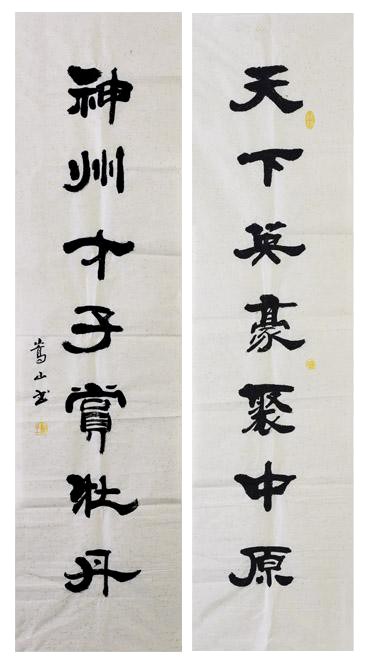 天下英豪聚中原
神州才子賞牡丹
嵩山书